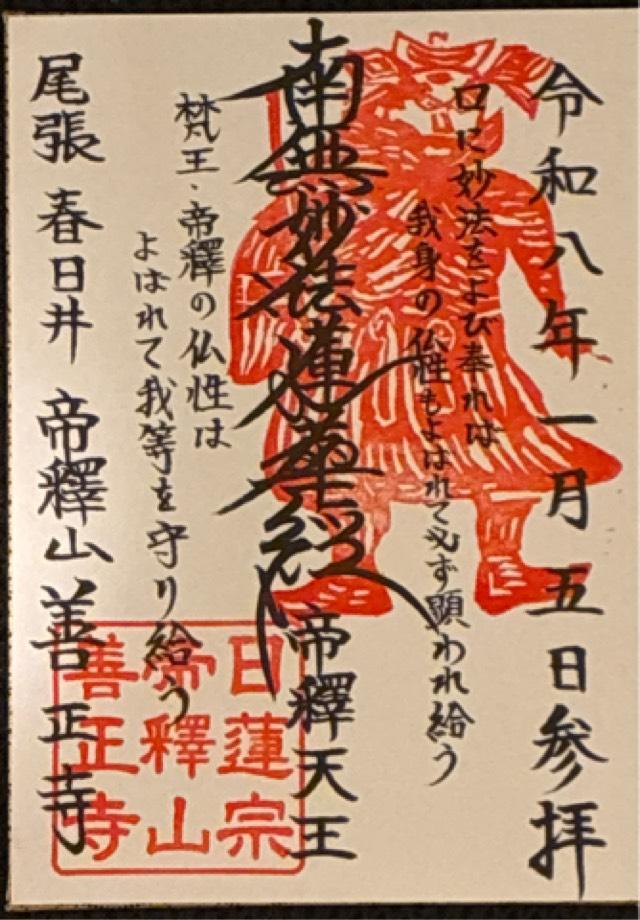 令和八年一月五日参拝
口に妙法をよび奉れは
我身の仏性もよはれて必ず顕われ給う
南無妙法蓮華経
帝釋天王
梵王・帝釋の仏性は
よはれて我等を守り給う
尾張 春日井 帝釋山 善正寺
日蓮宗
帝釋山
善正寺